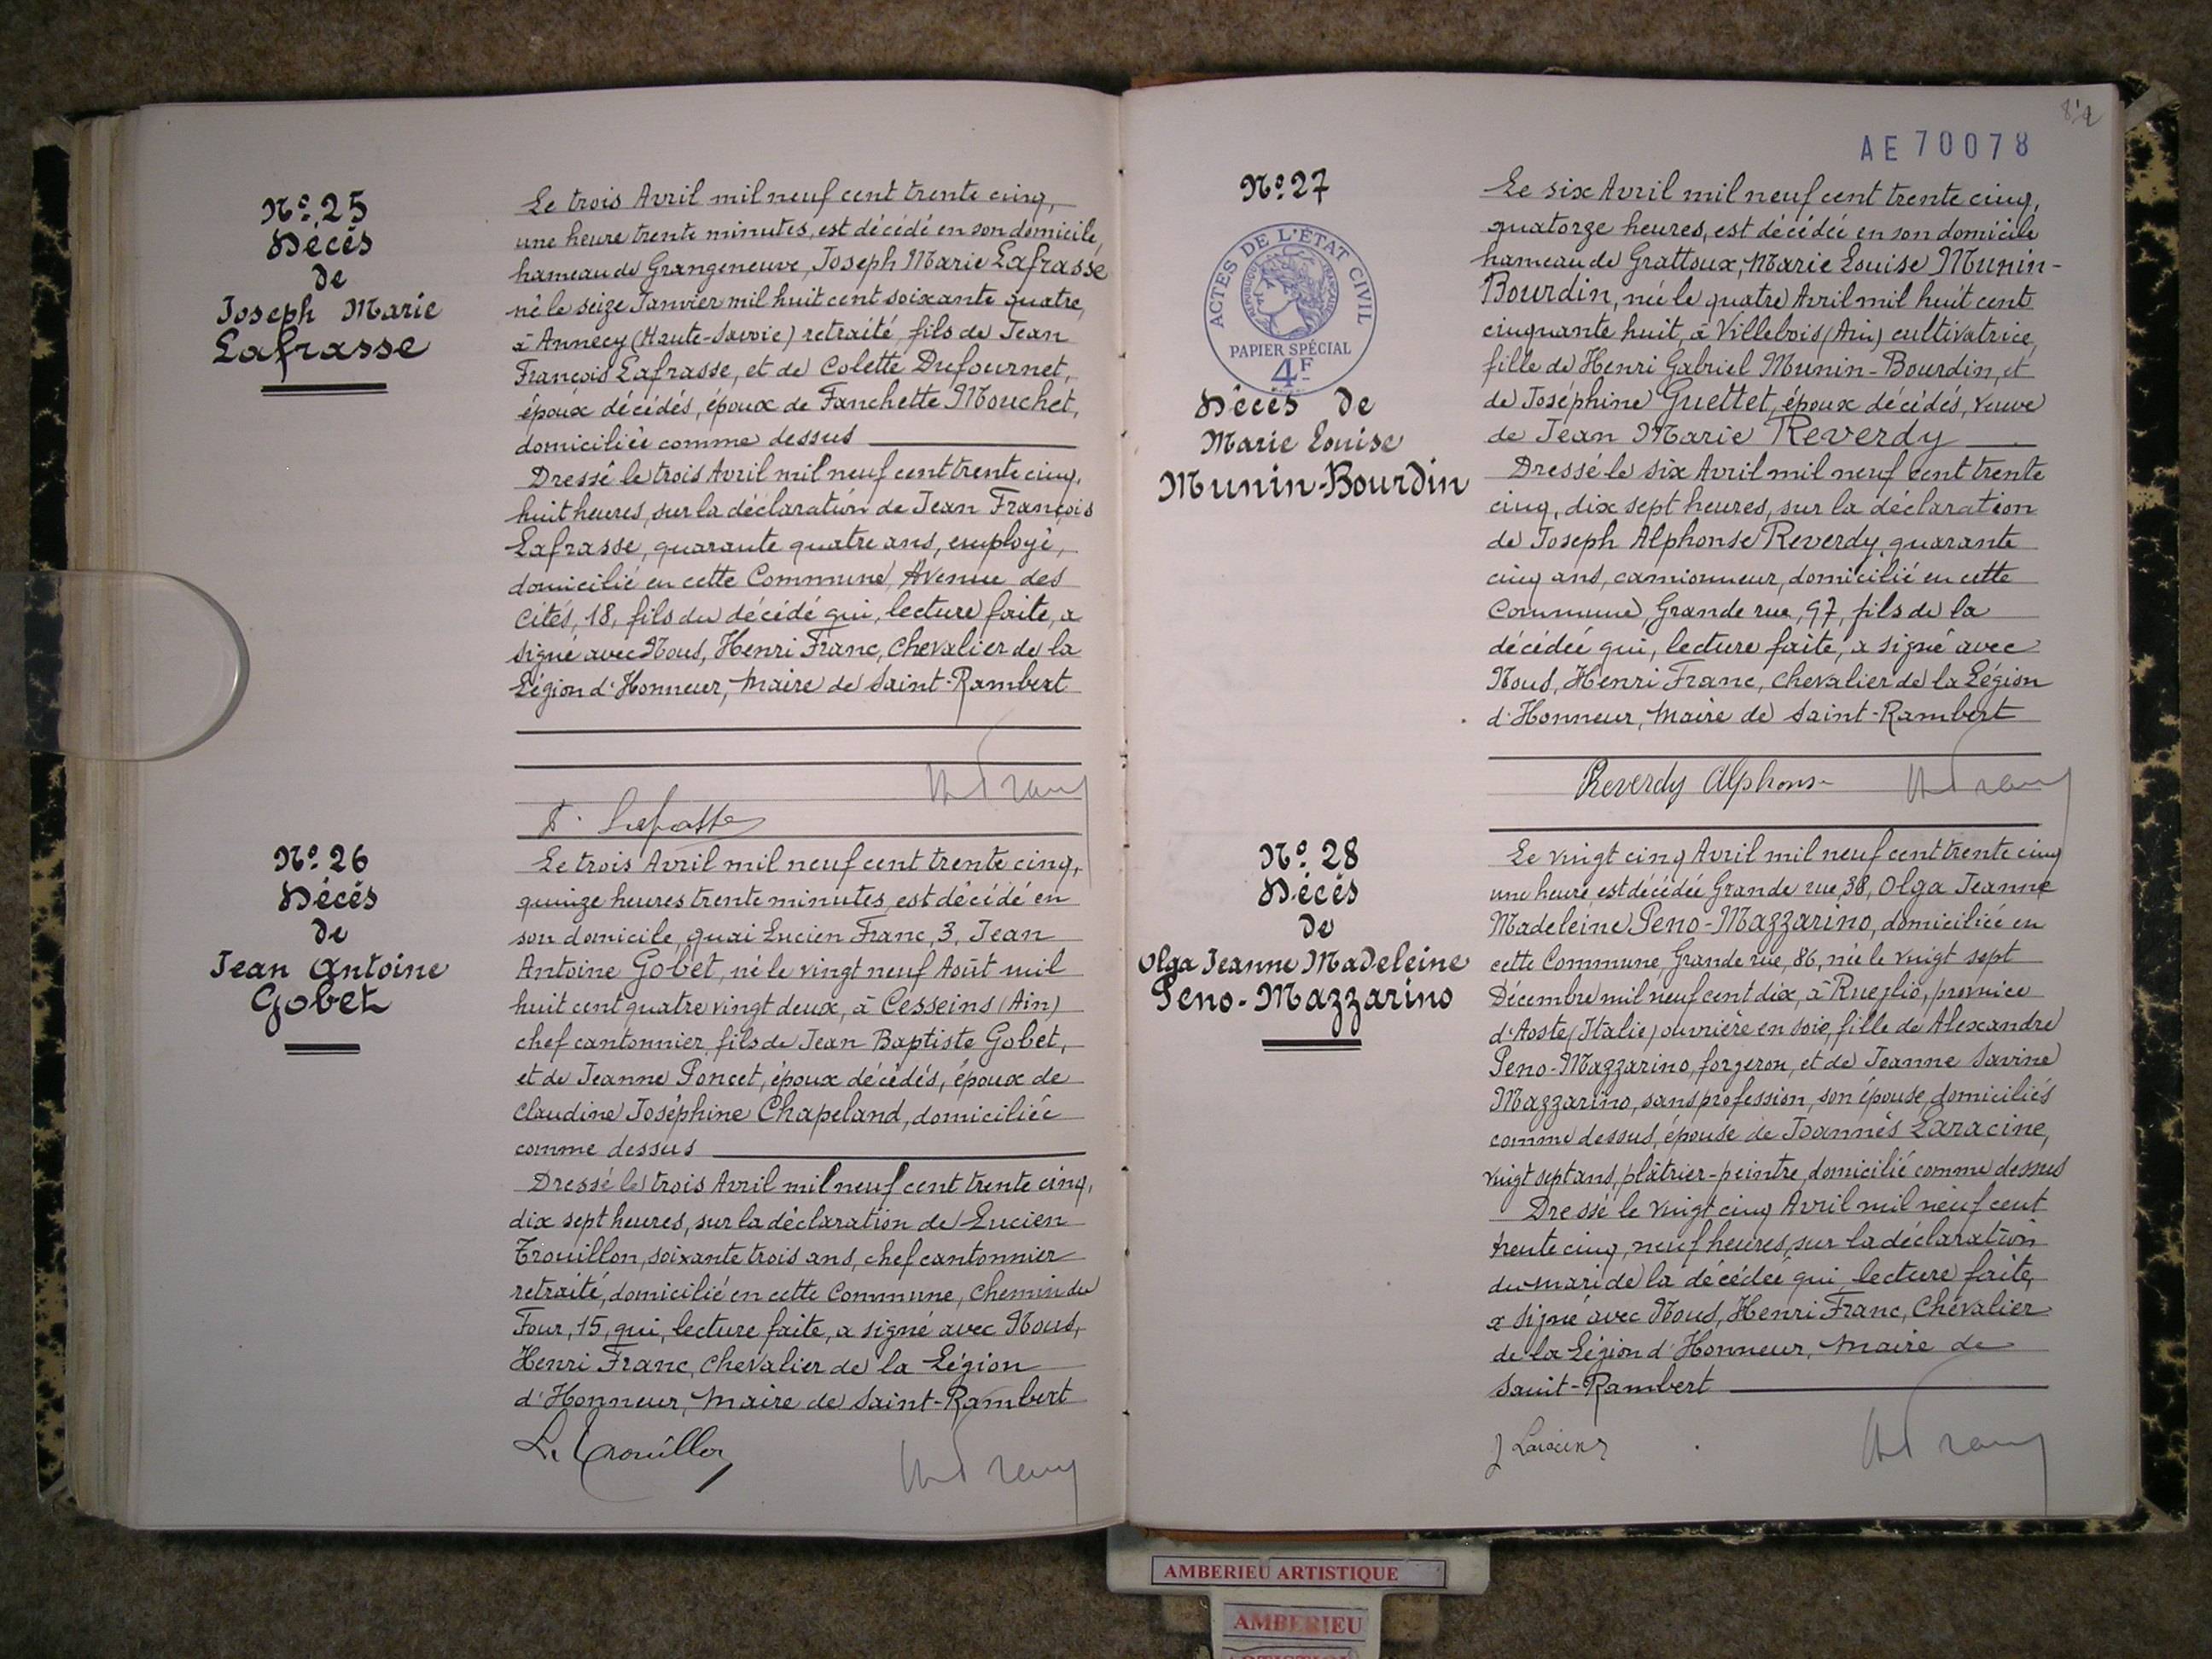 Nº 25
Décès
de
Joseph Marie
Lafrasse
Le trois Avril mil neuf cent trente cinq,
une heure trente minutes, est décédé en son domicile,
hameau de Grangeneuve, Joseph Marie Lafrasse
né le seize Janvier mil huit cent soixante quatre,
à Annecy (Haute-Savoie) retraité, fils de Jean
François Lafrasse, et de Colette Dufournet,
époux décédés, époux de Fanchette Mouchet,
domiciliée comme dessus
Dressé le trois Avril mil neuf cent trente cinq,
huit heures, sur la déclaration de Jean François
Lafrasse, quarante quatre ans, employé,
domicilié en cette Commune, Avenue des
Cités, 18, fils du décédé qui, lecture faite, a
signé avec Nous, Henri Franc, Chevalier de la
Légion d'Honneur, Maire de Saint-Rambert
Nº 26
Décès
de
Jean Antoine
Gobet
Le trois Avril mil neuf cent trente cinq,
quinze heures trente minutes, est décédé en
son domicile, quai Lucien Franc, 3, Jean
Antoine Gobet, né le vingt neuf Août mil
huit cent quatre vingt deux, à Cesseins (Ain)
chef cantonnier, fils de Jean Baptiste Gobet,
et de Jeanne Poncet, époux décédés, époux de
Claudine Joséphine Chapeland, domiciliée
comme dessus
Dressé le trois Avril mil neuf cent trente cinq,
dix sept heures, sur la déclaration de Lucien
Trouillon, soixante trois ans, chef cantonnier
retraité, domicilié en cette Commune, Chemin du
Four, 15, qui, lecture faite, a signé avec Nous,
Henri Franc, Chevalier de la Légion
d'Honneur, Maire de Saint-Rambert
L. Trouillon
AE 70078
Nº 27
ACTES DE L'ÉTAT CIVIL
RÉPUBLIQUE FRANÇAISE
PAPIER SPÉCIAL
4F
Décès de
Marie Louise
Munin-Bourdin
Le six Avril mil neuf cent trente cinq,
quatorze heures, est décédée en son domicile
hameau de Grattoux, Marie Louise Munin-
Bourdin, née le quatre Avril mil huit cent
cinquante huit, à Villebois (Ain) cultivatrice,
fille de Henri Gabriel Munin-Bourdin, et
de Joséphine Guettet, époux décédés, veuve
de Jean Marie Reverdy
Dressé le six Avril mil neuf cent trente
cinq, dix sept heures, sur la déclaration
de Joseph Alphonse Reverdy, quarante
cinq ans, camionneur, domicilié en cette
Commune, Grande rue, 97, fils de la
décédée qui, lecture faite, a signé avec
Nous, Henri Franc, Chevalier de la Légion
d'Honneur, Maire de Saint-Rambert
Reverdy Alphons
Nº 28
Décès
de
Olga Jeanne Madeleine
Peno-Mazzarino
Le vingt cinq Avril mil neuf cent trente cinq
une heure est décédée Grande rue, 38, Olga Jeanne
Madeleine Peno-Mazzarino, domiciliée en
cette Commune, Grande rue, 86, née le vingt sept
Décembre mil neuf cent dix, à Rueglio, province
d'Aoste (Italie) ouvrière en soie, fille de Alexandre
Peno-Mazzarino, forgeron, et de Jeanne Savine
Mazzarino, sans profession, son épouse, domiciliés
comme dessus, épouse de Joannès Laracine,
vingt sept ans, plâtrier-peintre, domicilié comme dessus
Dressé le vingt cinq Avril mil neuf cent
trente cinq, neuf heures, sur la déclaration
du mari de la décédée qui lecture faite,
a signé avec Nous, Henri Franc, Chevalier
de la Légion d'Honneur, Maire de
Saint-Rambert
J Laracine
AMBERIEU ARTISTIQUE
AMBERIEU
ARTISTIQUE